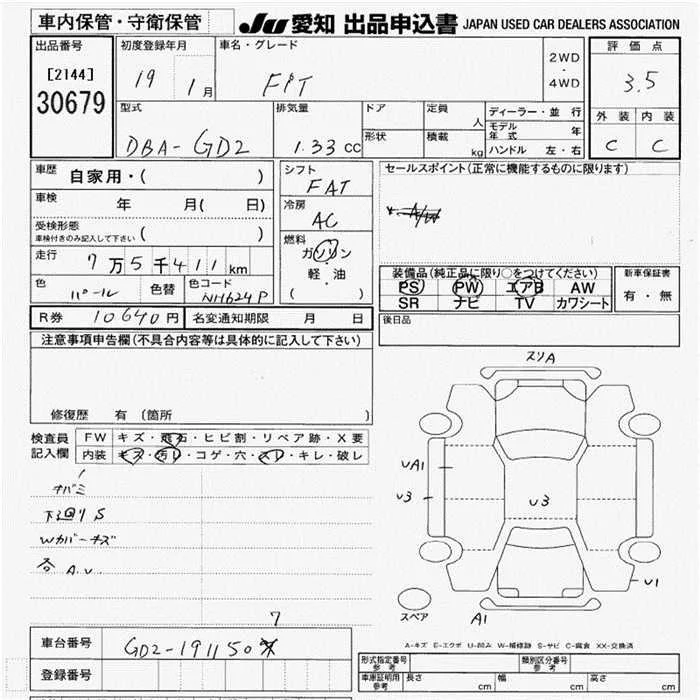 車内保管・守衛保管
JU 愛知 出品申込書 JAPAN USED CAR DEALERS ASSOCIATION
出品番号
[2144]
30679
初度登録年月
19 1月
車名・グレード
FIT
2WD
・
4WD
評価点
3.5
外装 内装
C C
型式
DBA-GD2
排気量
1.33 CC
ドア
形状
定員
人
積載
kg
ディーラー・並行
モデル年式 年
ハンドル 左・右
車歴
自家用・( )
車検
年 月( 日)
受検形態
車検付きのみ記入して下さい ( )
走行
7万5千411km
色
パール
色替
色コード
NH624P
シフト
FAT
冷房
AC
燃料
ガソリン
・
軽・油
( )
セールスポイント(正常に機能するものに限ります)
A/W
装備品(純正品に限り○をつけてください)
PS PW エアB AW
SR ナビ TV カワシート
新車保証書
有・無
R券 10640円
名変通知期限 月 日
後日品
注意事項申告欄(不具合内容等は具体的に記入して下さい)
修復歴 有 (箇所 )
検査員
記入欄
FW キズ・飛石・ヒビ割・リペア跡・X要
内装 キズ・汚レ・コゲ・穴・スレ・キレ・破レ
下廻りS
Wカバーキズ
A.U.
スリA
UA1
U3
U3
U1
A1
スペア
A-キズ E-エクボ U-凹み W-補修跡 S-サビ C-腐食 XX-交換済
7
車台番号
GD2-191150
登録番号
形式指定番号
参考
類別区分番号
参考
車庫証明用
参考
長さ cm 幅 cm 高さ cm